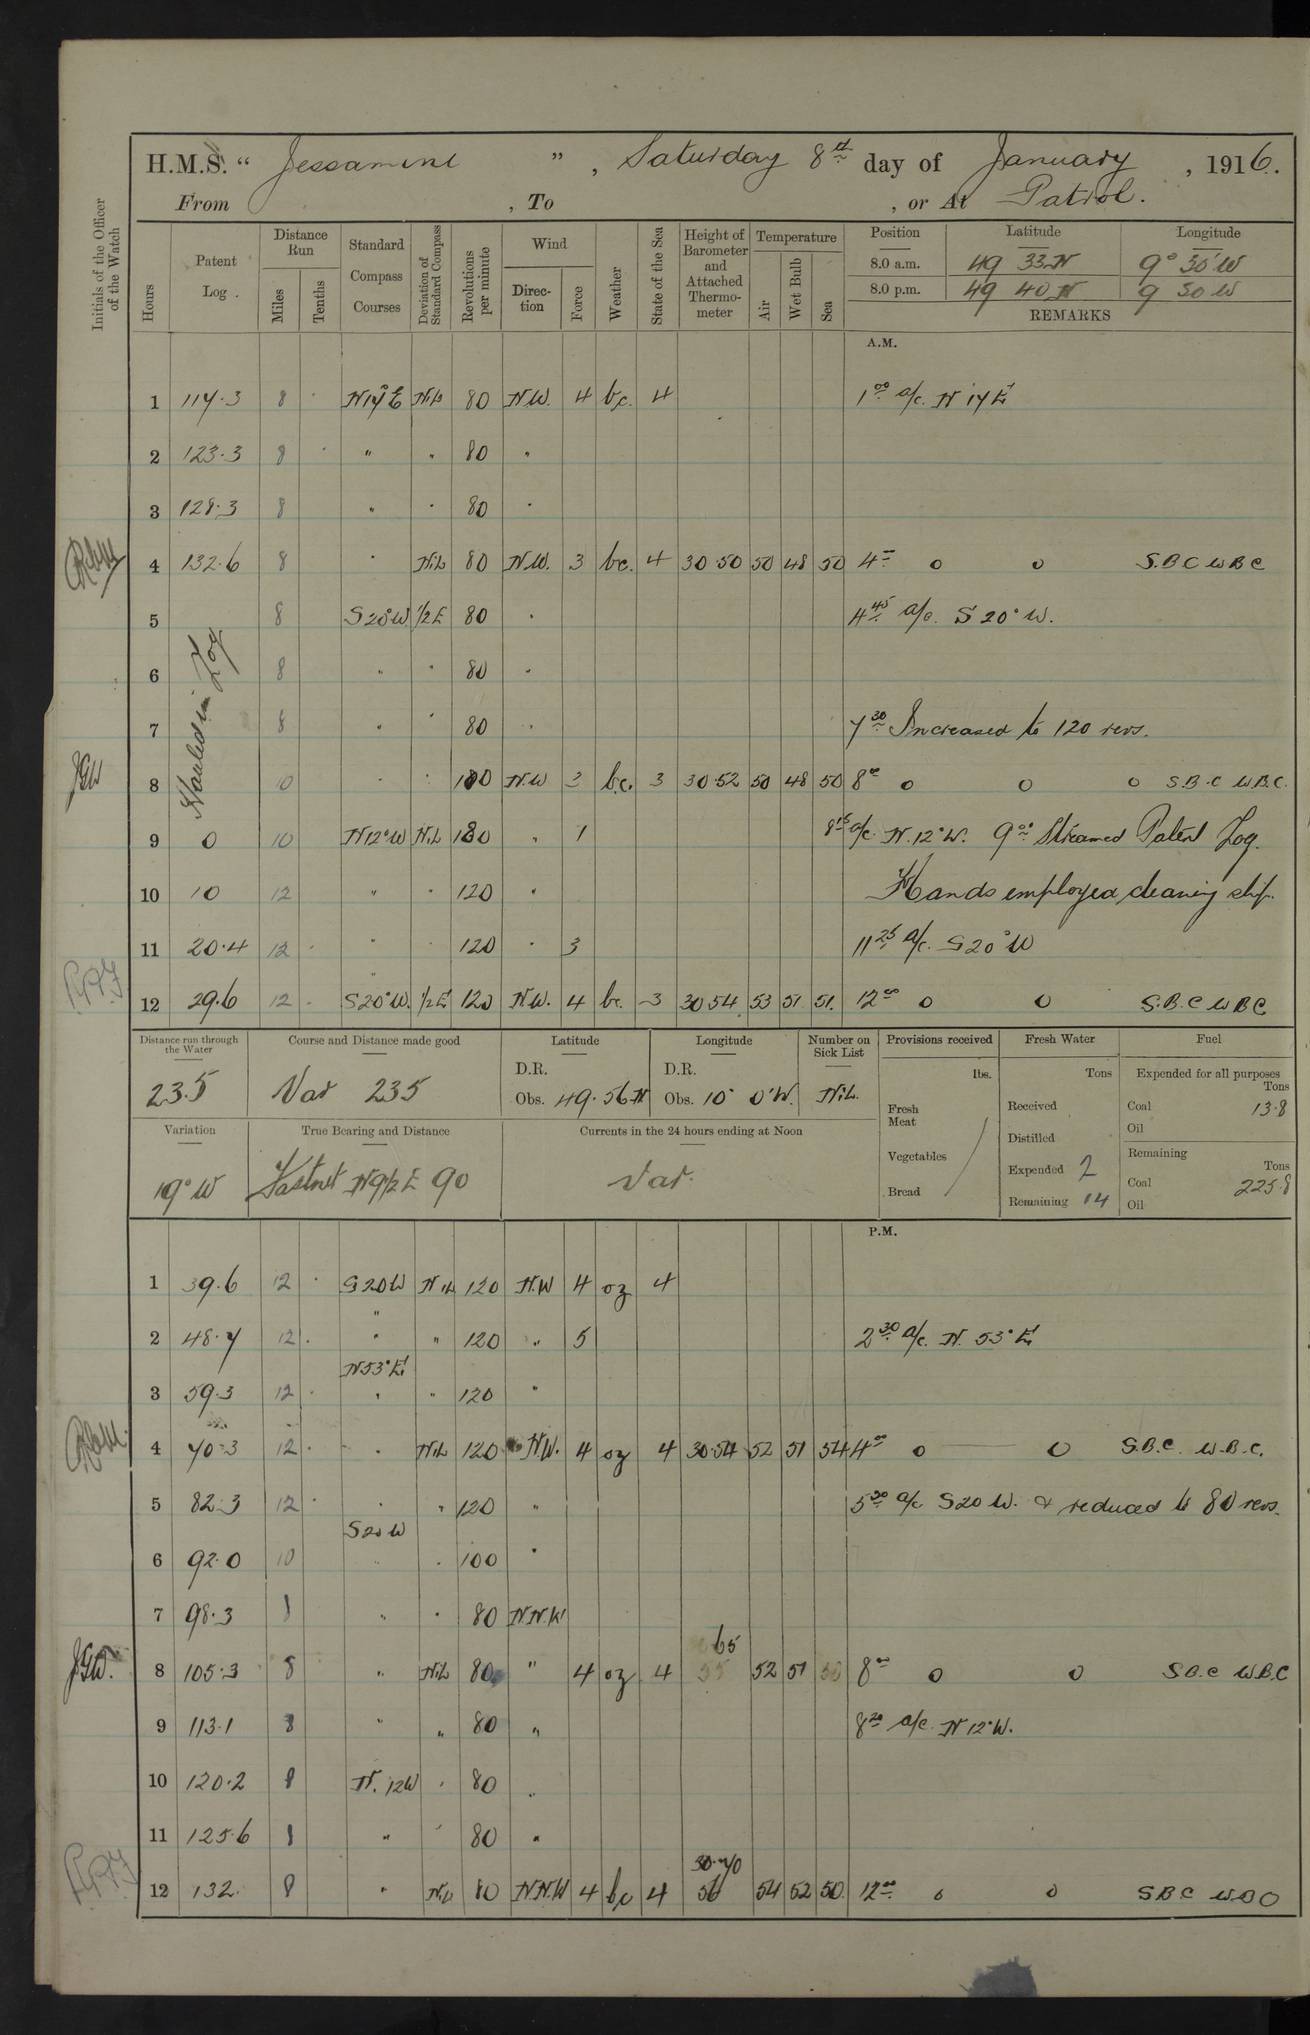 H.M.S. " Jessamine ", Saturday 8th day of January, 1916.
From , To , or At Patrol.
Initials of the Officer of the Watch
Hours
Patent Log.
Distance Run
Miles
Tenths
Standard Compass Courses
Deviation of Standard Compass
Revolutions per minute
Wind
Direction
Force
Weather
State of the Sea
Height of Barometer and Attached Thermometer
Temperature
Air
Wet Bulb
Sea
Position Latitude Longitude
8.0 a.m. 49 33 N 9° 30' W
8.0 p.m. 49 40 N 9 30 W
REMARKS
A.M.
1 117.3 8 . N 17° E Nil 80 N.W. 4 bc. 4 1 00 a/c. N 17 E
2 123.3 8 . " " 80 "
3 128.3 8 " " 80 "
4 132.6 8 " Nil 80 N.W. 3 bc. 4 30.50 50 48 50 4 00 o o S.B C W B C
5 8 S 20° W 1/2 E 80 " 4 45 a/c. S 20° W.
6 8 " " 80 "
7 8 " " 80 " 7 30 Increased to 120 revs.
Hauled in Log
JGW 8 10 " " 100 N.W 3 b.c. 3 30.52 50 48 50 8 00 o o o S.B.C W.B.C.
9 0 10 N 12° W Nil " 1 8 15 a/c. N. 12° W. 9 00 Streamed Patent Log.
10 10 12 " " 120 " Hands employed cleaning ship.
11 20.4 12 . " " 120 " 3 11 25 a/c. S 20° W
12 29.6 12 . S 20° W. 1/2 E 120 N.W. 4 bc. 3 30 54 53 51 51. 12 00 o o S.B.C W B C
Distance run through the Water
Course and Distance made good
Latitude
Longitude
Number on Sick List
Provisions received
Fresh Water
Fuel
235
Var 235
D.R.
Obs. 49.56 N
D.R.
Obs. 10° 0' W.
Nil.
lbs.
Fresh Meat
Vegetables
Bread
Tons
Received
Distilled
Expended 2
Remaining 14
Expended for all purposes
Tons
Coal 13.8
Oil
Remaining
Tons
Coal 225.8
Oil
Variation
True Bearing and Distance
Currents in the 24 hours ending at Noon
19° W
Fastnet N 9 1/2 E 90
Var.
P.M.
1 39.6 12 . S 20 W Nil 120 N.W 4 oz 4
2 48.7 12 . " " 120 " 5 2 30 a/c. N. 53° E
N 53° E
3 59.3 12 . " " 120 "
4 70.3 12 . " Nil 120 N.W. 4 oz 4 30.54 52 51 54 4 00 o o S.B.C. W.B.C.
5 82.3 12 . " " 120 " 5 30 a/c S 20 W. & reduced to 80 revs.
S 20 W
6 92.0 10 " . 100 "
7 98.3 8 " " 80 N.N.W
JGW. 8 105.3 8 " Nil 80 " 4 oz 4 65 55 52 51 8 00 o o S.B.C W.B.C
9 113.1 8 " " 80 " 8 20 a/c. N 12° W.
10 120.2 8 N. 12 W " 80 "
11 125.6 8 " " 80 "
12 132. 8 " Nil 80 N.N.W 4 bc 4 30.70 56 54 52 50. 12 00 o o S B C